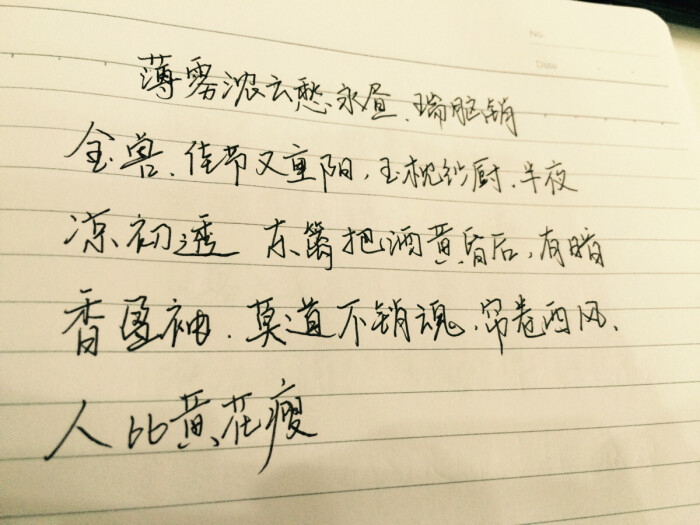 No.
Date
薄雾浓云愁永昼、瑞脑销
金兽、佳节又重阳，玉枕纱厨、半夜
凉初透 东篱把酒黄昏后，有暗
香盈袖、莫道不销魂、帘卷西风、
人比黄花瘦